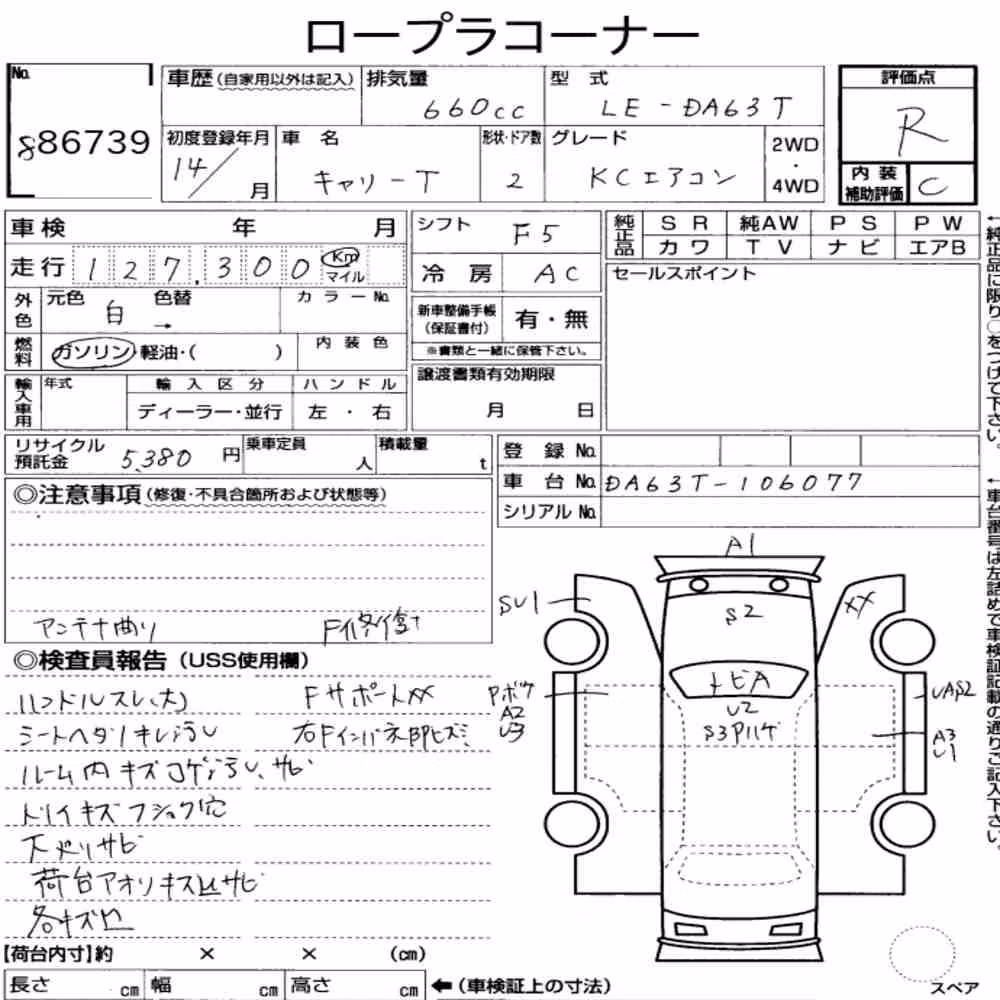 ロープラコーナー
No. 886739
車歴(自家用以外は記入) 排気量 660cc 型式 LE-DA63T 評価点 R
初度登録年月 14/ 月 車名 キャリーT 形状・ドア数 2 グレード KCエアコン 2WD・4WD 内装補助評価 C
車検 年 月 シフト F5 純正品 SR 純AW PS PW
カワ TV ナビ エアB
走行 127,300 Km マイル 冷房 AC セールスポイント
外色 元色 白 色替 → カラーNo. 新車整備手帳(保証書付) 有・無
燃料 ガソリン・軽油・( ) 内装色 ※書類と一緒に保管下さい。
輸入車用 年式 輸入区分 ハンドル 譲渡書類有効期限
ディーラー・並行 左・右 月 日
リサイクル預託金 5,380 円 乗車定員 人 積載量 t 登録No.
車台No. DA63T-106077
シリアルNo.
◎注意事項(修復・不具合箇所および状態等)
アンテナ曲り F修復
◎検査員報告(USS使用欄)
ハンドルスレ(大) FサポートXX
シートヘタリキレ汚レ 右Fインパネ部ヒズミ
ルーム内キズコゲ汚レ、サビ
ドリイキズフショク穴
下廻りサビ
荷台アオリキズ凹サビ
各キズ凹
【荷台内寸】約 × × (cm)
長さ cm 幅 cm 高さ cm ←(車検証上の寸法)
A1
SU1
S2
XX
トビA
U2
S3Pハゲ
Pボケ
A2
U3
UAS2
A3
U1
スペア
←純正品に限り○をつけて下さい。
←車台番号は左詰めで車検証記載の通りご記入下さい。